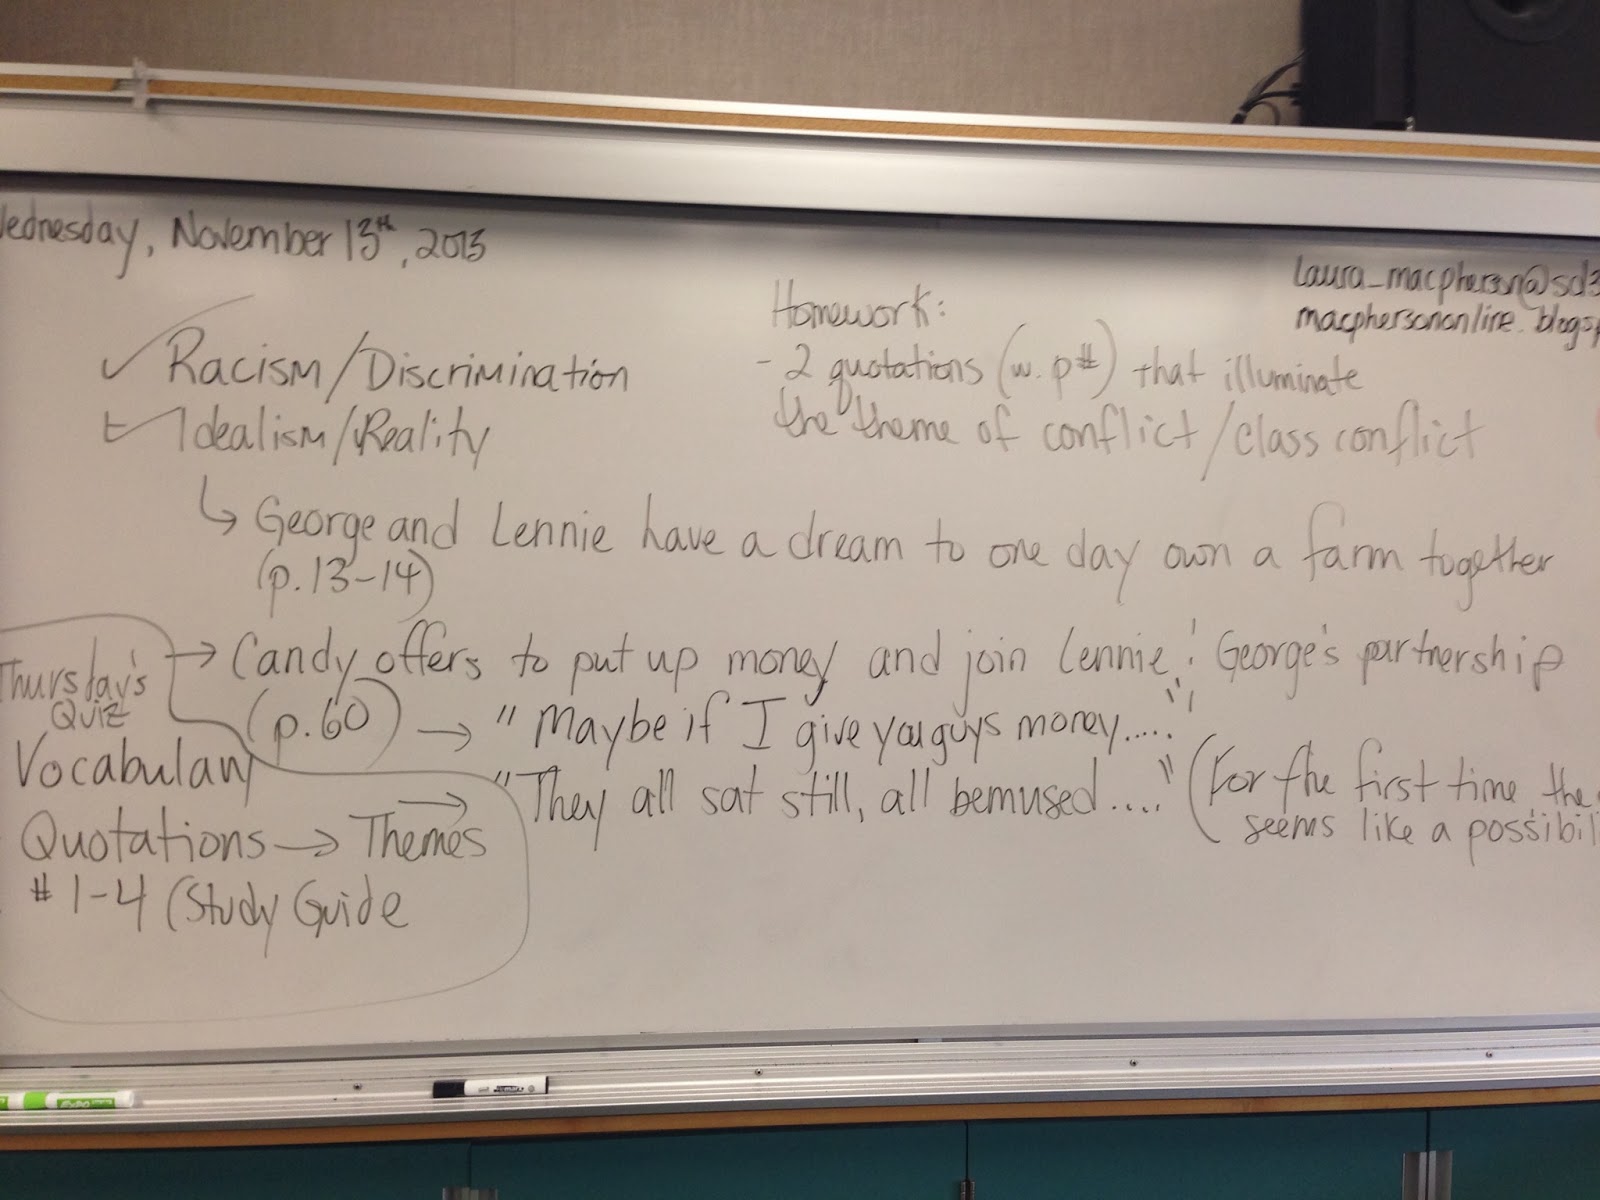 Wednesday, November 13th, 2013
Laura_macpherson@sd3
macphersononline.blogsp
Homework:
- 2 quotations (w. p#) that illuminate
the theme of conflict/class conflict
✓ Racism/Discrimination
Idealism/Reality
↳ George and Lennie have a dream to one day own a farm together
(p.13-14)
→ Candy offers to put up money and join Lennie : George's partnership
(p.60) → "Maybe if I give you guys money....."
"They all sat still, all bemused...." (For the first time, the
seems like a possibil
Thursday's
Quiz
Vocabulary
Quotations → Themes
# 1-4 (Study Guide
Expo